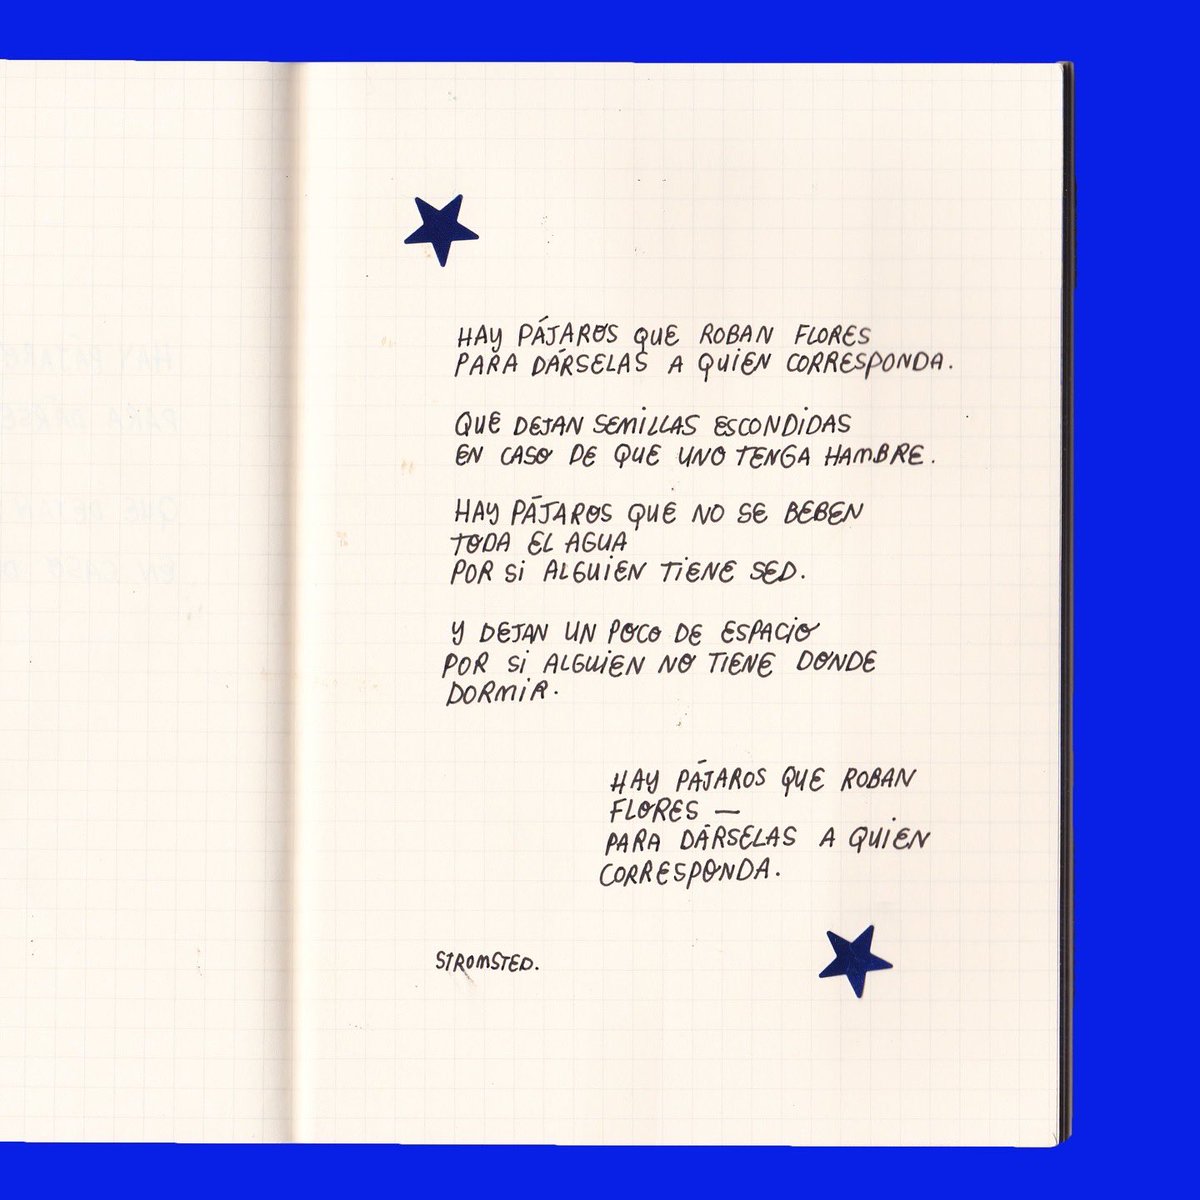 HAY PÁJAROS QUE ROBAN FLORES
PARA DÁRSELAS A QUIEN CORRESPONDA.
QUE DEJAN SEMILLAS ESCONDIDAS
EN CASO DE QUE UNO TENGA HAMBRE.
HAY PÁJAROS QUE NO SE BEBEN
TODA EL AGUA
POR SI ALGUIEN TIENE SED.
Y DEJAN UN POCO DE ESPACIO
POR SI ALGUIEN NO TIENE DONDE
DORMIR.
HAY PÁJAROS QUE ROBAN
FLORES —
PARA DÁRSELAS A QUIEN
CORRESPONDA.
STROMSTED.